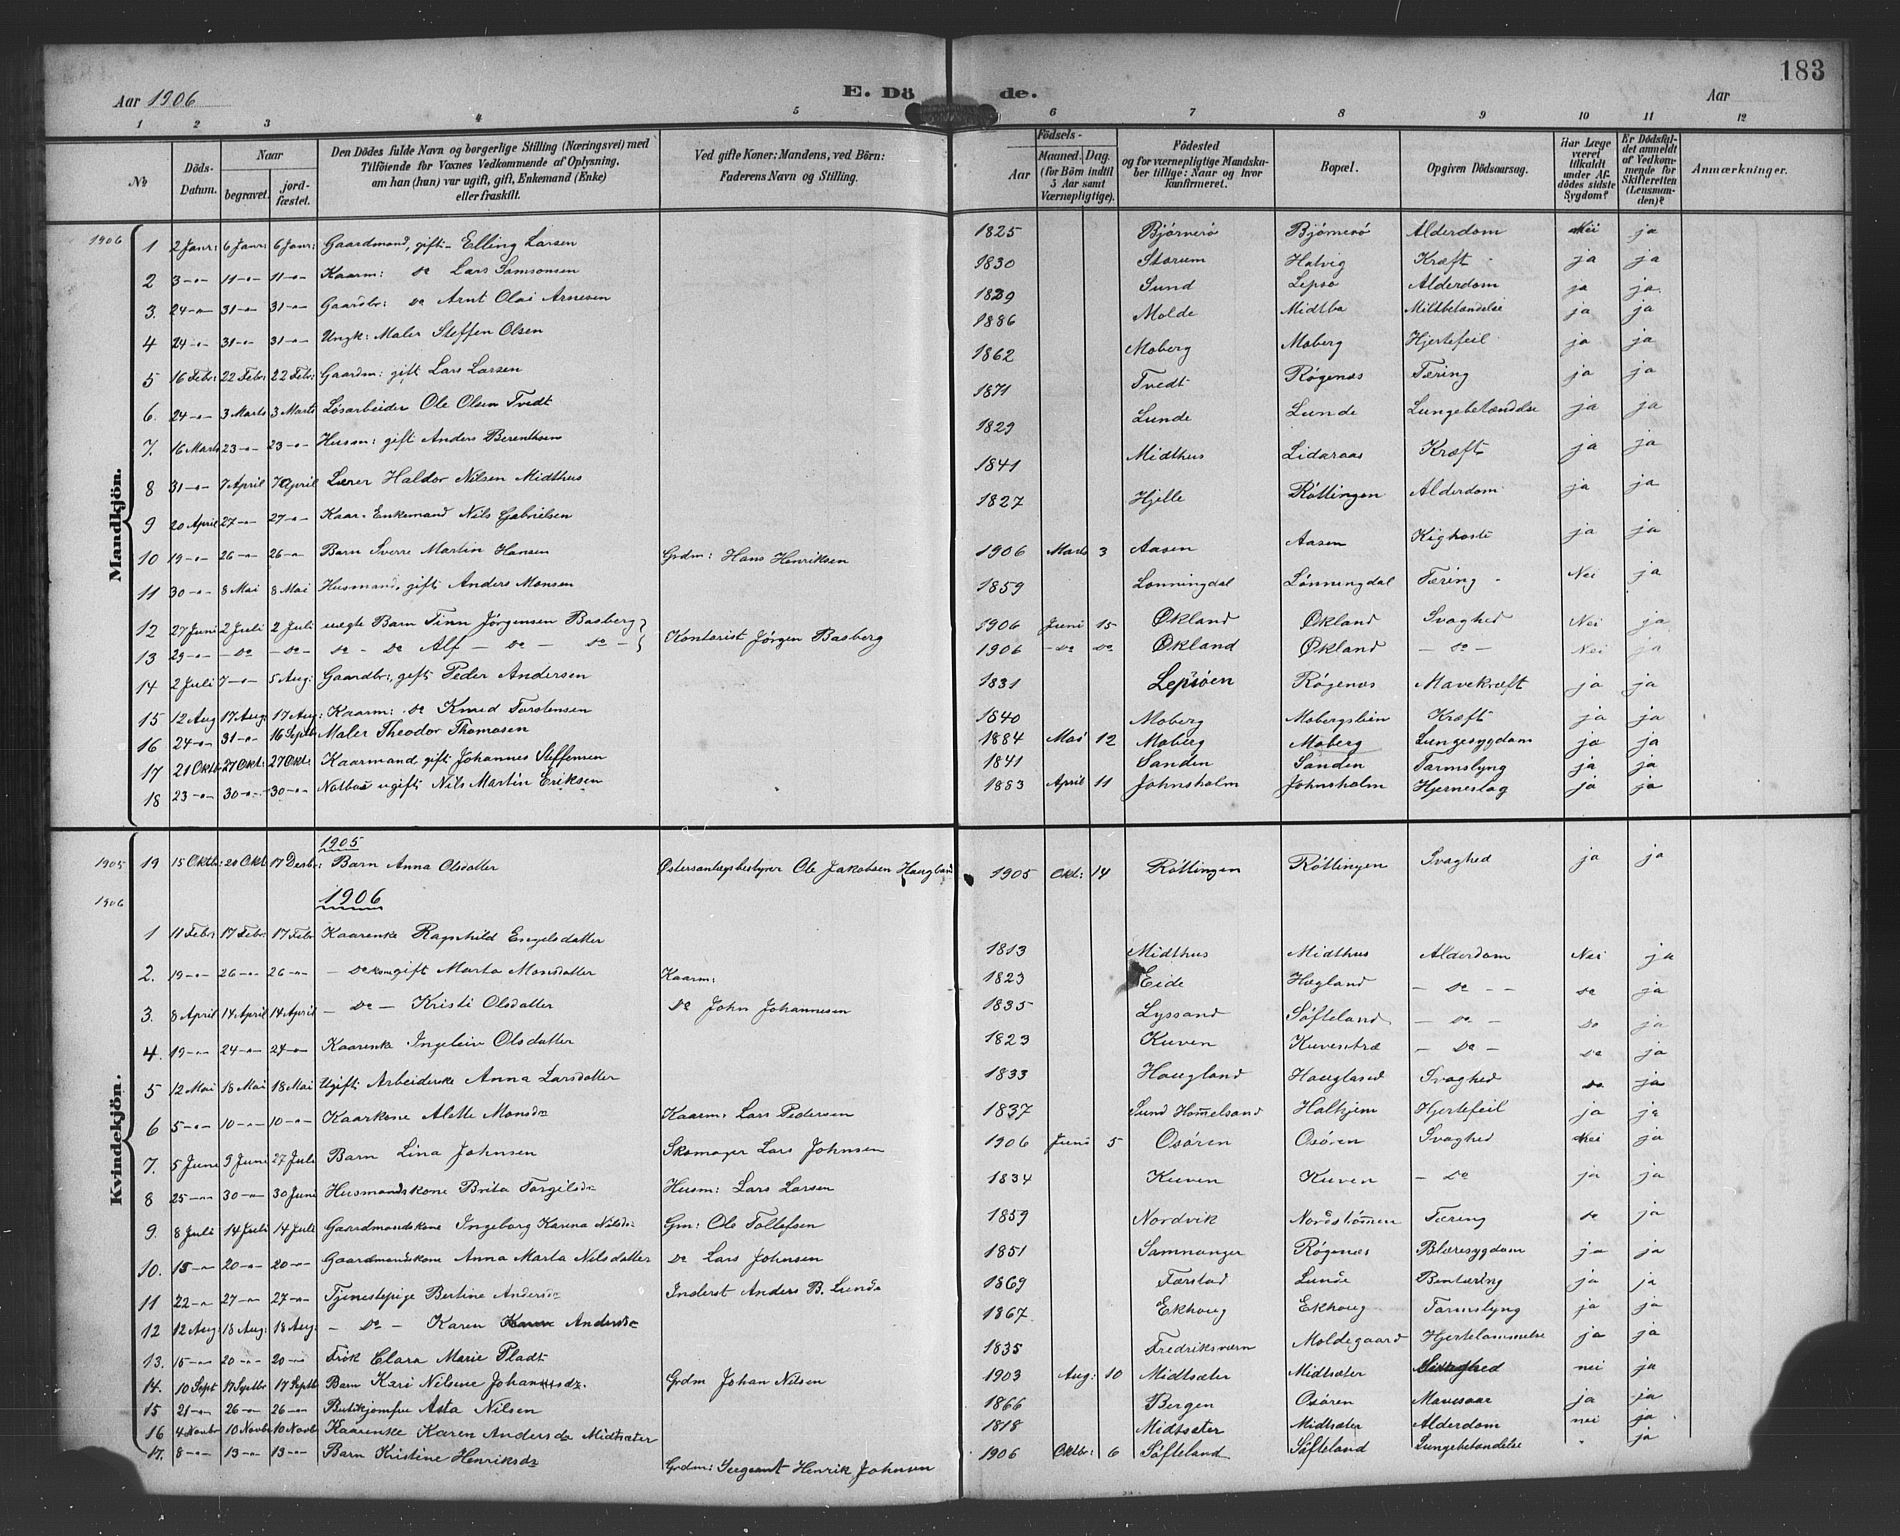 183
Aar 1906
E. Dö de.
Aar
1 2 3 4 5 6 7 8 9 10 11 12
No. Döds-Datum. Naar begravet. jord-fæstet. Den Dödes fulde Navn og borgerlige Stilling (Næringsvei) med Tilföiende for Voxnes Vedkommende af Oplysning, om han (hun) var ugift, gift, Enkemand (Enke) eller fraskilt. Ved gifte Koner: Mandens, ved Börn: Faderens Navn og Stilling. Födsels- Aar Maaned. Dag. (for Börn indtil 5 Aar samt Værnepligtige). Födested og for værnepligtige Mandskaber tillige: Naar og hvor konfirmeret. Bopæl. Opgiven Dödsaarsag. Har Læge været tilkaldt under Afdödes sidste Sygdom? Er Dödsfaldet anmeldt af Vedkommende for Skifteretten (Lensmanden)? Anmærkninger.
Mandkjön.
1906 1 2 Janr: 6 Janr: 6 Janr: Gaardmand, gift - Elling Larsen 1825 Bjørnerø Bjørnerø Alderdom Nei ja
2 3-"- 11-"- 11-"- Kaarm: do Lars Samsonsen 1830 Størum Hatvig Kræft ja ja
3. 24-"- 31-"- 31-"- Gaardbr: do Arnt Olai Arnesen 1829 Sund Lepsø Alderdom ja ja
4 24-"- 31-"- 31-"- Ungk: Maler Steffen Olsen 1886 Molde Midtbø Miltbetændelse ja ja
5 16 Febr: 22 Febr: 22 Febr: Gaardm: gift Lars Larsen 1862 Moberg Moberg Hjertefeil ja ja
6. 24-"- 3 Marts 3 Marts Løsarbeider Ole Olsen Tvedt 1871 Tvedt Røgenæs Tæring ja ja
7. 16 Marts 23-"- 23-"- Husm: gift Anders Berenthsen 1829 Lunde Lunde Lungebetændelse ja ja
8 31-"- 7 April 7 April Lærer Haldor Nilsen Midthus 1841 Midthus Lidaraas Kræft ja ja
9 20 April 27-"- 27-"- Kaar-Enkemand Nils Gabrielsen 1827 Hjelle Røttingen Alderdom ja ja
10 19-"- 26-"- 26-"- Barn Sverre Martin Hansen Grdm: Hans Henriksen 1906 Marts 3 Aasen Aasen Kighoste ja ja
11 30-"- 8 Mai 8 Mai Husmand, gift Anders Monsen 1859 Lønningdal Lønningdal Tæring - Nei ja
12 27 Juni 2 Juli 2 Juli uægte Barn Finn Jørgensen Basberg Kontorist Jørgen Basberg 1906 Juni 15 Økland Økland Svaghed Nei ja
13 29-"- - do - - do - do - do Alf - do - do - 1906 - do do Økland Økland - do - Nei ja
14 2 Juli 7-"- 5 Aug: Gaardbr:, gift Peder Andersen 1831 Lepsøen Røgenæs Mavekræft ja ja
15 12 Aug 17 Aug: 17 Aug: Kaarm: do Knud Torstensen 1840 Moberg Mobergslien Kræft ja ja
16 24-"- 31-"- 16 Septb Maler Theodor Thomasen 1884 Mai 12 Moberg Moberg Lungesygdom ja ja
17 21 Oktb 27 Okt: 27 Okt: Kaarmand, gift, Johannes Steffensen 1841 Sanden Sanden Tarmslyng ja ja
18 23-"- 30-"- 30-"- Notbas ugift Nils Martin Eriksen 1883 April 11 Johnsholm Johnsholm Hjerneslag ja ja
Kvindekjön.
1905
1905 19 15 Oktb: 20 Okt 17 Desbr: Barn Anna Olsdatter Østersanlægsbestyrer Ole Jakobsen Haugland 1905 Okt: 14 Røttingen Røttingen Svaghed ja ja
1906 1906
1 11 Febr 17 Febr: 17 Febr Kaarenke Ragnhild Engelsdatter 1813 Midthus Midthus Alderdom Nei ja
2. 19-"- 26-"- 26-"- - do kone gift Marta Monsdatter Kaarm: 1823 Eide Hægland - do - - do ja
3. 8 April 14 April 14 April - do - Kristi Olsdatter do John Johannesen 1835 Lyssand Søfteland - do - Do ja
4. 19-"- 24-"- 24-"- Kaarenke Ingeleiv Olsdatter 1823 Kuven Kuventræ - do - do ja
5 12 Mai 18 Mai 18 Mai Ugift Arbeiderske Anna Larsdatter 1833 Haugland Haugland Svaghed do ja
6 5-"- 10-"- 10-"- Kaarkone Alette Monsdr Kaarm: Lars Pedersen 1837 Sund Hommelsand Halhjem Hjertefeil ja ja
7. 5 June 9 June 27 Juli Barn Lina Johnsen Skomager Lars Johnsen 1906 Juni 5 Osøren Osøren Svaghed Nei ja
8 25-"- 30-"- 30 Juni Husmandskone Brita Torgilsdr Husm: Lars Larsen 1834 Kuven Kuven - do ja ja
9. 8 Juli 14 Juli 14 Juli Gaardmandskone Ingeborg Karina Nilsdr Gm: Ole Tollefsen 1859 Nordvik Nordstrømen Tæring do ja
10. 15-"- 20-"- 20-"- Gaardmandskone Anna Marta Nilsdatter do Lars Johnsen 1851 Samnanger Røgenæs Blæresygdom ja ja
11 22-"- 27-"- 27-"- Tjenestepige Bertine Andersdr Inderst Anders B. Lunde 1869 Færstad Lunde Bentæring ja ja
12 12 Aug: 18 Aug: 18 Aug: - do - Karen Andersdr 1867 Ekhoug Ekhoug Tarmslyng ja ja
13. 15-"- 20-"- 20-"- Frøk Clara Marie Pladt 1835 Fredriksværn Moldegaard Hjertelammelse ja ja
14. 10 Sept 17 Septbr 17 Septb Barn Kari Nilsine Johannesdr. Grdm Johan Nilsen 1903 Aug: 10 Midtsæter Midtsæter Svaghed nei ja
15 21-"- 26-"- 26-"- Butikjomfru Asta Nilsen 1866 Bergen Osøren Mavesaar ja ja
16 4 Novbr 10 Novbr 10 Novbr Kaarenke Karen Andersdr Midtsæter 1818 Midtsæter Midtsæter Alderdom nei ja
17. 8-"- 13-"- 13-"- Barn Kristine Henriksdr Grdm: Sergeant Henrik Johnsen 1906 Oktbr: 6 Søfteland Søfteland Lungebetændelse ja